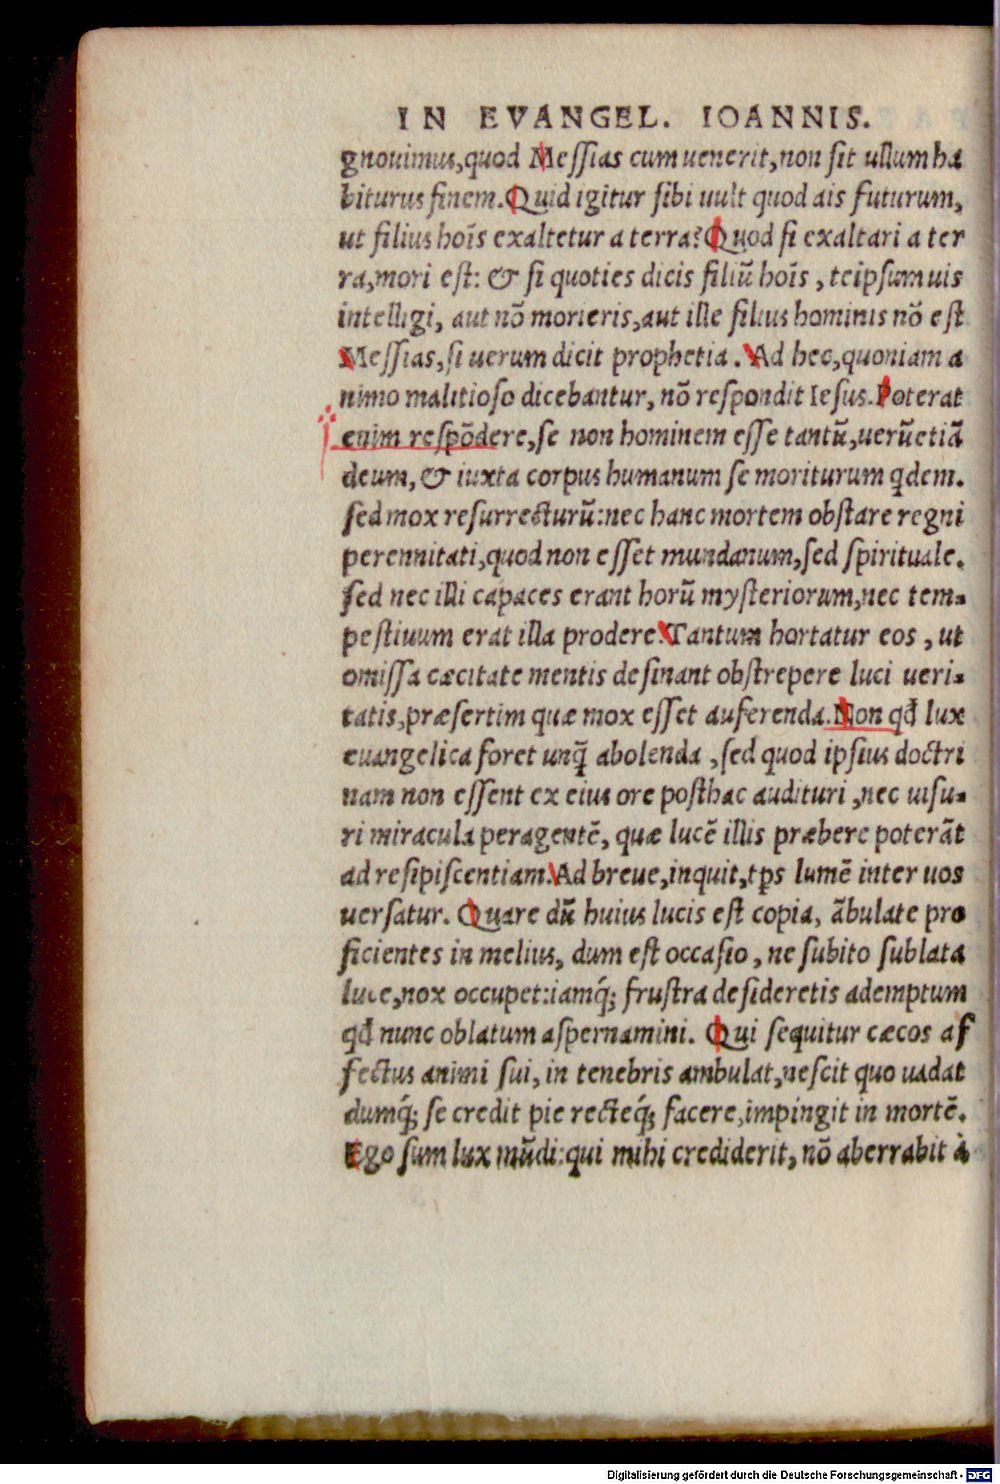 IN EVANGEL. IOANNIS.
gnouimus,quod Meſſias cum uenerit,non ſit ullum ha
biturus finem. Quid igitur ſibi uult quod ais futurum,
ut filius hoı̄s exaltetur a terra? Quod ſi exaltari a ter
ra,mori eſt: & ſi quoties dicis filiū hoı̄s , teipſum uis
intelligi, aut nō morieris,aut ille filius hominis nō eſt
Meſſias,ſi uerum dicit prophetia. Ad hec,quoniam a
nimo malitioſo dicebantur, nō reſpondit Ieſus. Poterat
enim reſpōdere,ſe non hominem eſſe tantū,uerūetiā
deum, & iuxta corpus humanum ſe moriturum qdem.
ſed mox reſurrecturū:nec hanc mortem obſtare regni
perennitati,quod non eſſet mundanum,ſed ſpirituale.
ſed nec illi capaces erant horū myſteriorum,nec tem-
peſtiuum erat illa prodere. Tantum hortatur eos , ut
omiſſa cæcitate mentis deſinant obſtrepere luci ueri-
tatis,præſertim quæ mox eſſet auferenda. Non qđ lux
euangelica foret unq̄ abolenda ,ſed quod ipſius doctri
nam non eſſent ex eius ore poſthac audituri ,nec uiſu-
ri miracula peragentē, quæ lucē illis præbere poterāt
ad reſipiſcentiam. Ad breue,inquit,tp̄s lumē inter uos
uerſatur. Quare dū huius lucis eſt copia, ābulate pro
ficientes in melius, dum eſt occaſio , ne ſubito ſublata
luce,nox occupet:iamq́; fruſtra deſideretis ademptum
qđ nunc oblatum aſpernamini. Qui ſequitur cæcos af
fectus animi ſui, in tenebris ambulat,neſcit quo uadat
dumq́; ſe credit pie recteq́; facere,impingit in mortē.
Ego ſum lux mūdi:qui mihi crediderit, nō aberrabit à
Digitalisierung gefördert durch die Deutsche Forschungsgemeinschaft - DFG